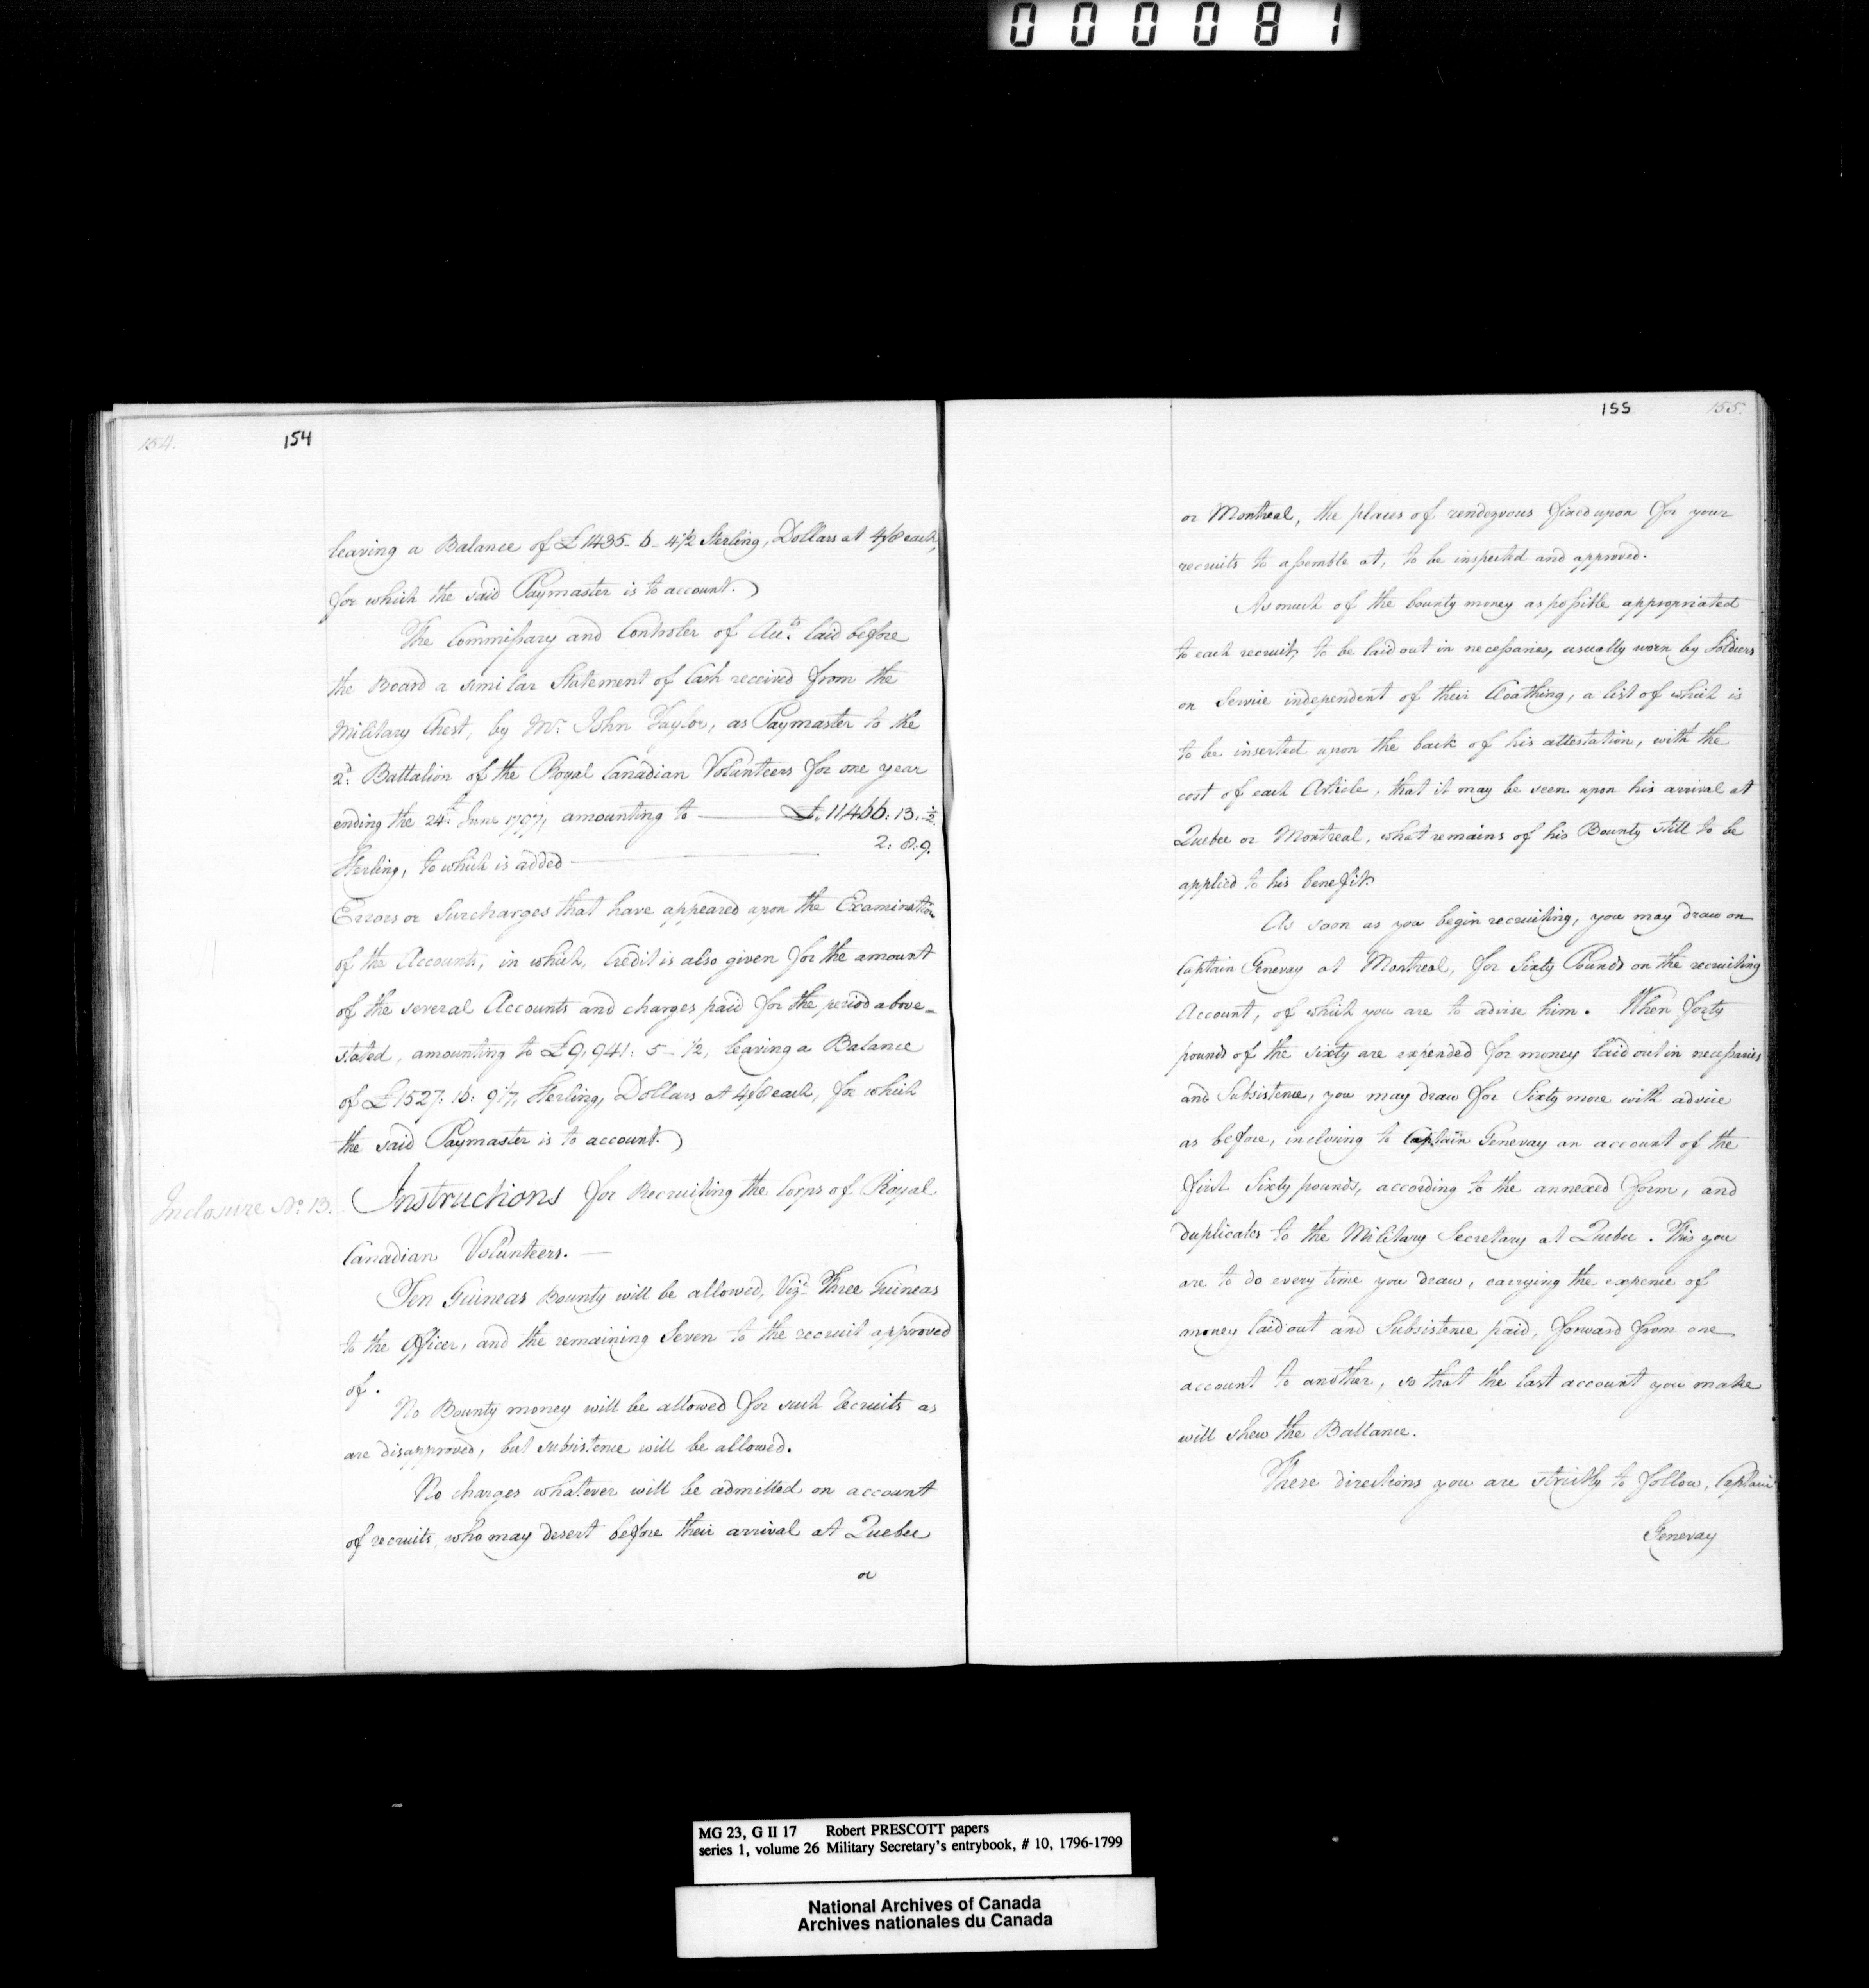 000081
154.
154
leaving a Balance of £1435-6-4½ Sterling, Dollars at 4/8 each,
for which the said Paymaster is to account.)
The Commissary and Controler of Accts. laid before
the Board a similar Statement of Cash received from the
Military Chest, by Mr. John Taylor, as Paymaster to the
2d. Battalion of the Royal Canadian Volunteers for one year
ending the 24th. June 1797, amounting to — £11,466:13:½
Sterling, to which is added — 2:8:9.
Errors or Surcharges that have appeared upon the Examination
of the Accounts, in which, Credit is also given for the amount
of the several Accounts and charges paid for the period above-
stated, amounting to £9,941:5-½, leaving a Balance
of £1527:16:9 Sterling, Dollars at 4/8 each, for which
the said Paymaster is to account.)
Inclosure No. 13.
Instructions for Recruiting the Corps of Royal
Canadian Volunteers. —
Ten Guineas Bounty will be allowed, Vizt. Three Guineas
to the Officer, and the remaining Seven to the recruit approved
of.
No Bounty money will be allowed for such Recruits as
are disapproved, but subsistence will be allowed.
No charges whatever will be admitted on account
of recruits, who may desert before their arrival at Quebec
or
155
155.
or Montreal, the places of rendezvous fixed upon for your
recruits to assemble at, to be inspected and approved.
As much of the bounty money as possible appropriated
to each recruit, to be laid out in necessaries, usually worn by Soldiers
on Service independent of their Cloathing, a list of which is
to be inserted upon the back of his attestation, with the
cost of each Article, that it may be seen upon his arrival at
Quebec or Montreal, what remains of his Bounty still to be
applied to his benefit.
As soon as you begin recruiting, you may draw on
Captain Genevay at Montreal, for Sixty Pounds on the recruiting
Account, of which you are to advise him. When forty
pounds of the sixty are expended for money laid out in necessaries
and Subsistence, you may draw for Sixty more with advice
as before, inclosing to Captain Genevay an account of the
first Sixty pounds, according to the annexed form, and
duplicates to the Military Secretary at Quebec. This you
are to do every time you draw, carrying the expense of
money laid out and Subsistence paid, forward from one
account to another, so that the last account you make
will shew the Ballance.
These directions you are strictly to follow, Captain
Genevay
MG 23, G II 17 Robert PRESCOTT papers
series 1, volume 26 Military Secretary's entrybook, # 10, 1796-1799
National Archives of Canada
Archives nationales du Canada